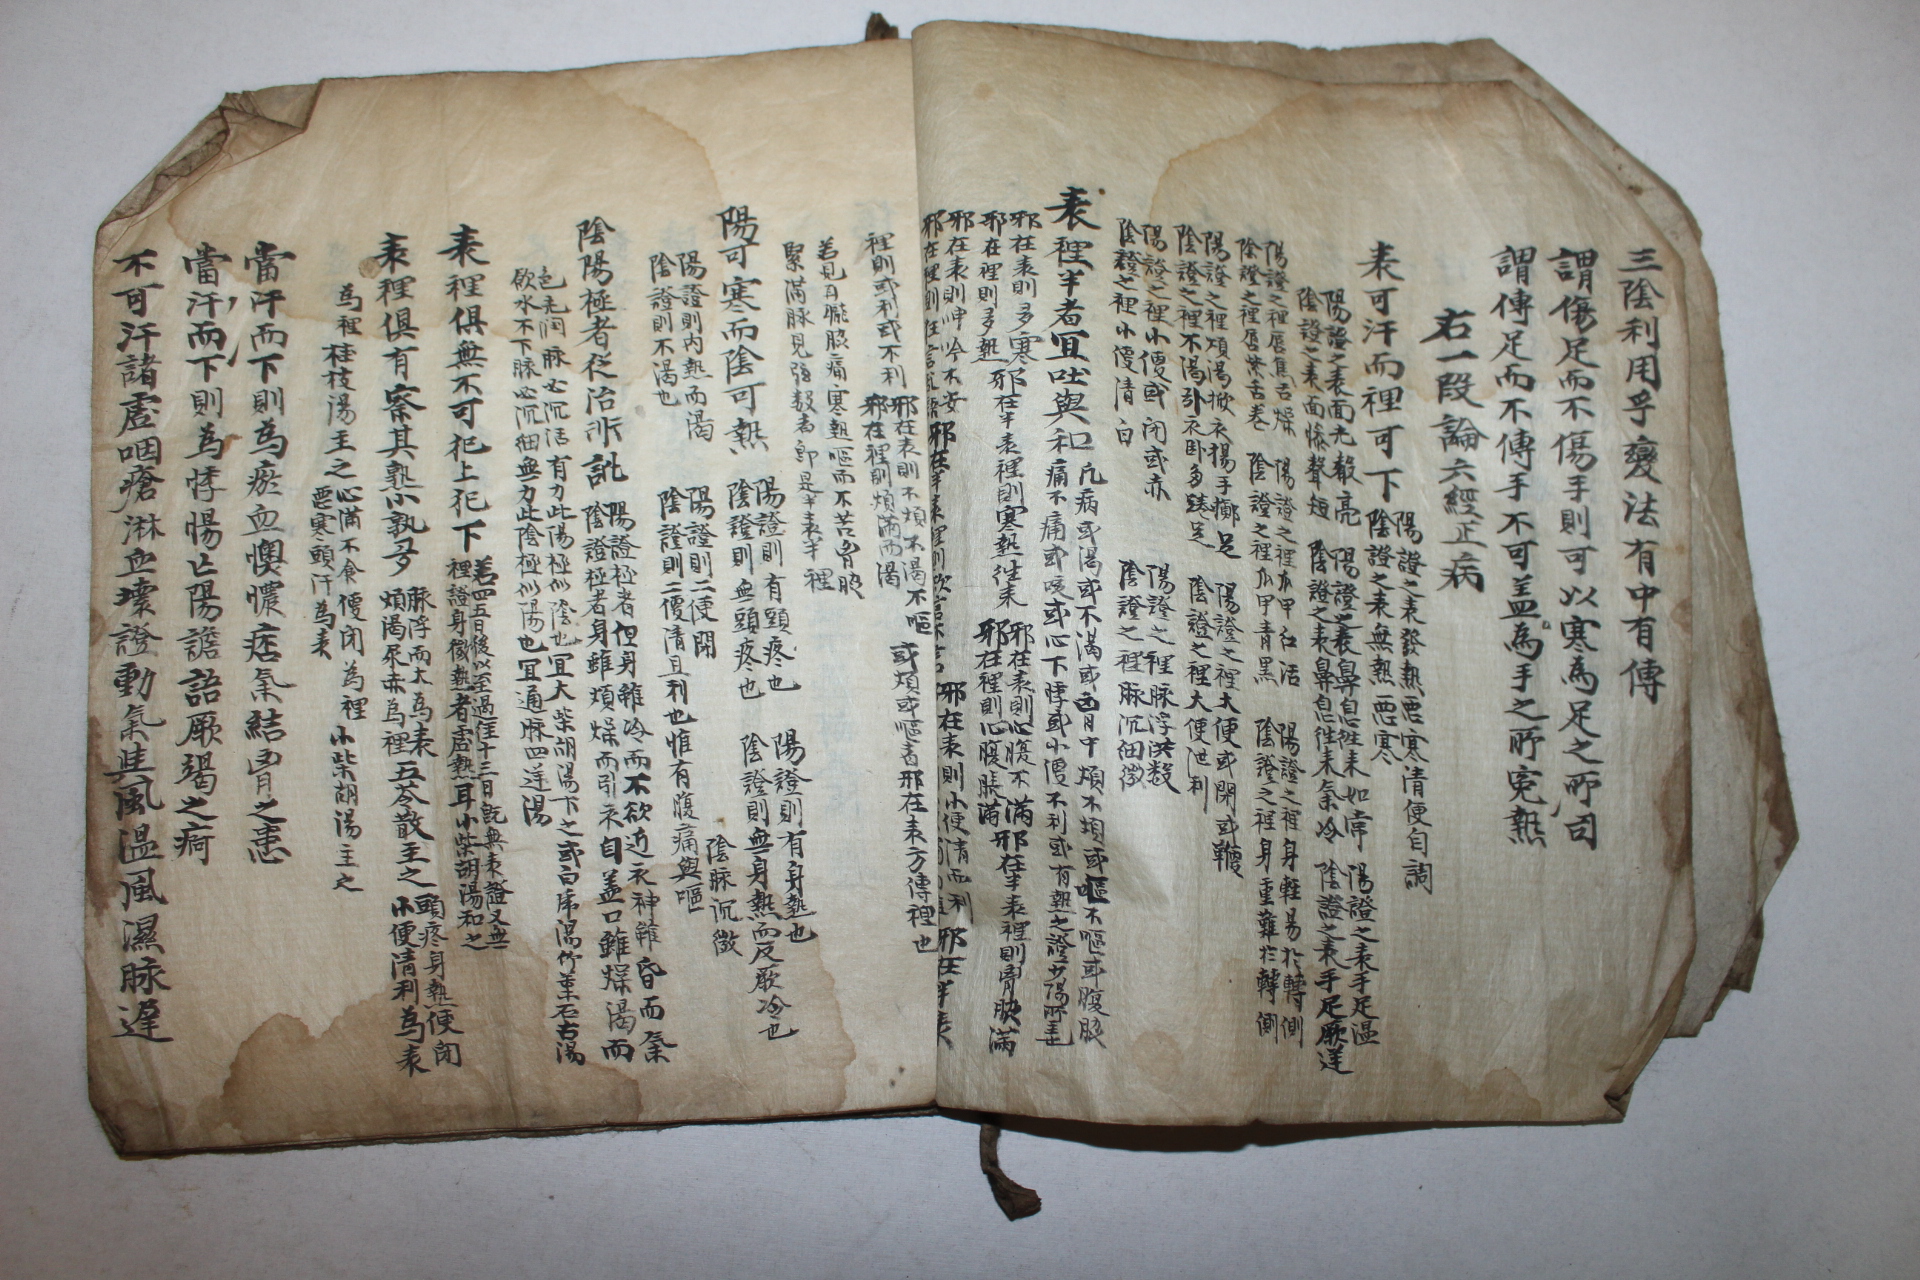 三陰利用乎變法有中有傳
謂傷足而不傷手則可以寒為足之所司
謂傳足而不傳手不可盖為手之所寃熱
右一段論六經正病
表可汗而裡可下
陽證之表發熱惡寒清便自調
陰證之表無熱惡寒
陽證之表面光聲亮 陽證之表鼻息往來如常 陽證之表手足温
陰證之表面慘聲短 陰證之表鼻息往來氣冷 陰證之表手足厥逆
陽證之裡唇焦舌燥 陽證之裡爪甲紅活 陽證之裡身輕易於轉側
陰證之裡唇紫舌卷 陰證之裡爪甲青黑 陰證之裡身重難於轉側
陽證之裡煩渴掀衣揚手擲足 陽證之裡大便或閉或鞕
陰證之裡不渴卧衣卧多踡足 陰證之裡大便泄利
陽證之裡小便或閉或赤 陽證之裡脉浮洪数
陰證之裡小便清白 陰證之裡脉沉細微
表裡半者宜吐與和
凡病或渴或不渴或胷中煩不煩或嘔不嘔或腹脇
痛不痛或咳或心下悸或小便不利或有熱之證少陽所主
邪在表則多寒 邪在半表裡則寒熱往來 邪在表則心腹不滿 邪在半表裡則胷脇滿
邪在裡則多熱 邪在裡則心腹脹滿
邪在表則呻吟不安 邪在表則小便清而利
裡則或利或不利 邪在表則不煩不渴不嘔 或煩或嘔者邪在表方傳裡也
邪在裡則煩滿而渴
若見耳聾脇痛寒熱嘔而不苦胷脇
緊滿脉見弦数者即是半表半裡
陽可寒而陰可熱
陽證則有頭疼也 陽證則有身熱也
陰證則無頭疼也 陰證則無身熱而反厥冷也
陽證則内熱而渴 陽證則二便閉
陰證則不渴也 陰證則二便清且利也惟有腹痛與嘔
陰脉沉微
陰陽極者從治所訛
陽證極者但身雖冷而不欲近衣神雖昏而氣
陰證極者身雖煩燥而引衣自盖口雖燥渴而
色光润脉必沉活有力此陽極似陰也宜大柴胡湯下之或白虎湯竹葉石膏湯
欲水不下脉必沉細無力此陰極似陽也宜通脉四逆湯
表裡俱無不可犯上犯下
若四五日後以至過徃十三日旣無表證又無
裡證身微熱者虛熱耳小柴胡湯和之
表裡俱有察其熟小孰多
脉浮而大為表 五苓散主之 頭疼身熱便閉
煩渴尿赤為裡 小便清利為表
為裡桂枝湯主之 心滿不食便閉為裡 小柴胡湯主之
惡寒頭汗為表
當汗而下則為瘀血懊憹痞氣結胷之患
當汗而下則為悸惕亡陽譫語厥竭之疴
不可汗諸虛咽瘡淋血壞證動氣與風温風濕脉遲